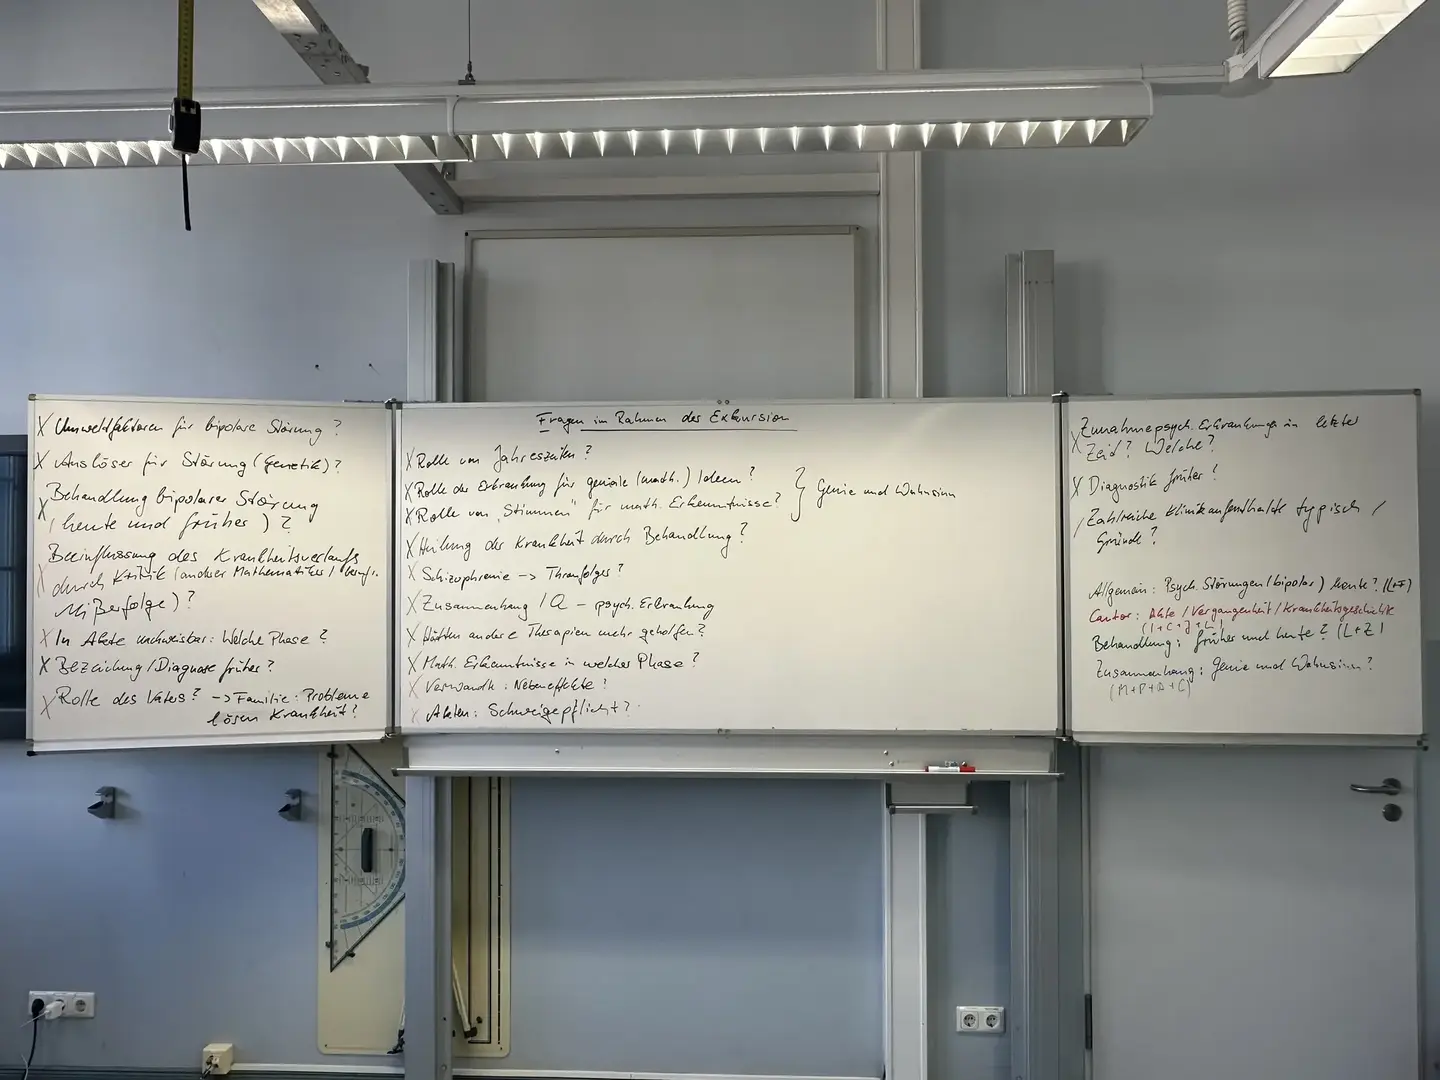 X Umweltfaktoren für bipolare Störung?
X Auslöser für Störung (Genetik)?
X Behandlung bipolarer Störung
(heute und früher)?
X Beeinflussung des Krankheitsverlaufs
durch Kritik (anderer Mathematiker / berufl.
Mißerfolge)?
X In Akte nachweisbar: Welche Phase?
X Bezeichung/Diagnose früher?
X Rolle des Vaters? -> Familie: Probleme
lösen Krankheit?
Fragen im Rahmen der Exkursion
X Rolle von Jahreszeiten?
X Rolle der Erkrankung für geniale (math.) Ideen?
X Rolle von "Stimmen" für math. Erkenntnisse? } Genie und Wahnsinn
X Heilung der Krankheit durch Behandlung?
X Schizophrenie -> Thronfolger?
X Zusammenhang IQ - psych. Erkrankung
X Hätten andere Therapien mehr geholfen?
X Math. Erkenntnisse in welcher Phase?
X Verwandte: Nebeneffekte?
X Akten: Schweigepflicht?
Zunahme psych. Erkrankungen in letzter
X Zeit? Welche?
X Diagnostik früher!
/ Zahlreiche Klinikaufenthalte typisch /
Gründe?
Allgemein: Psych. Störungen (bipolar) heute? (L+F)
Cantor: Akte / Vergangenheit / Krankheitsgeschichte
(I+C+J+L)
Behandlung: früher und heute? (L+Z)
Zusammenhang: Genie und Wahnsinn?
(M+P+A+C)